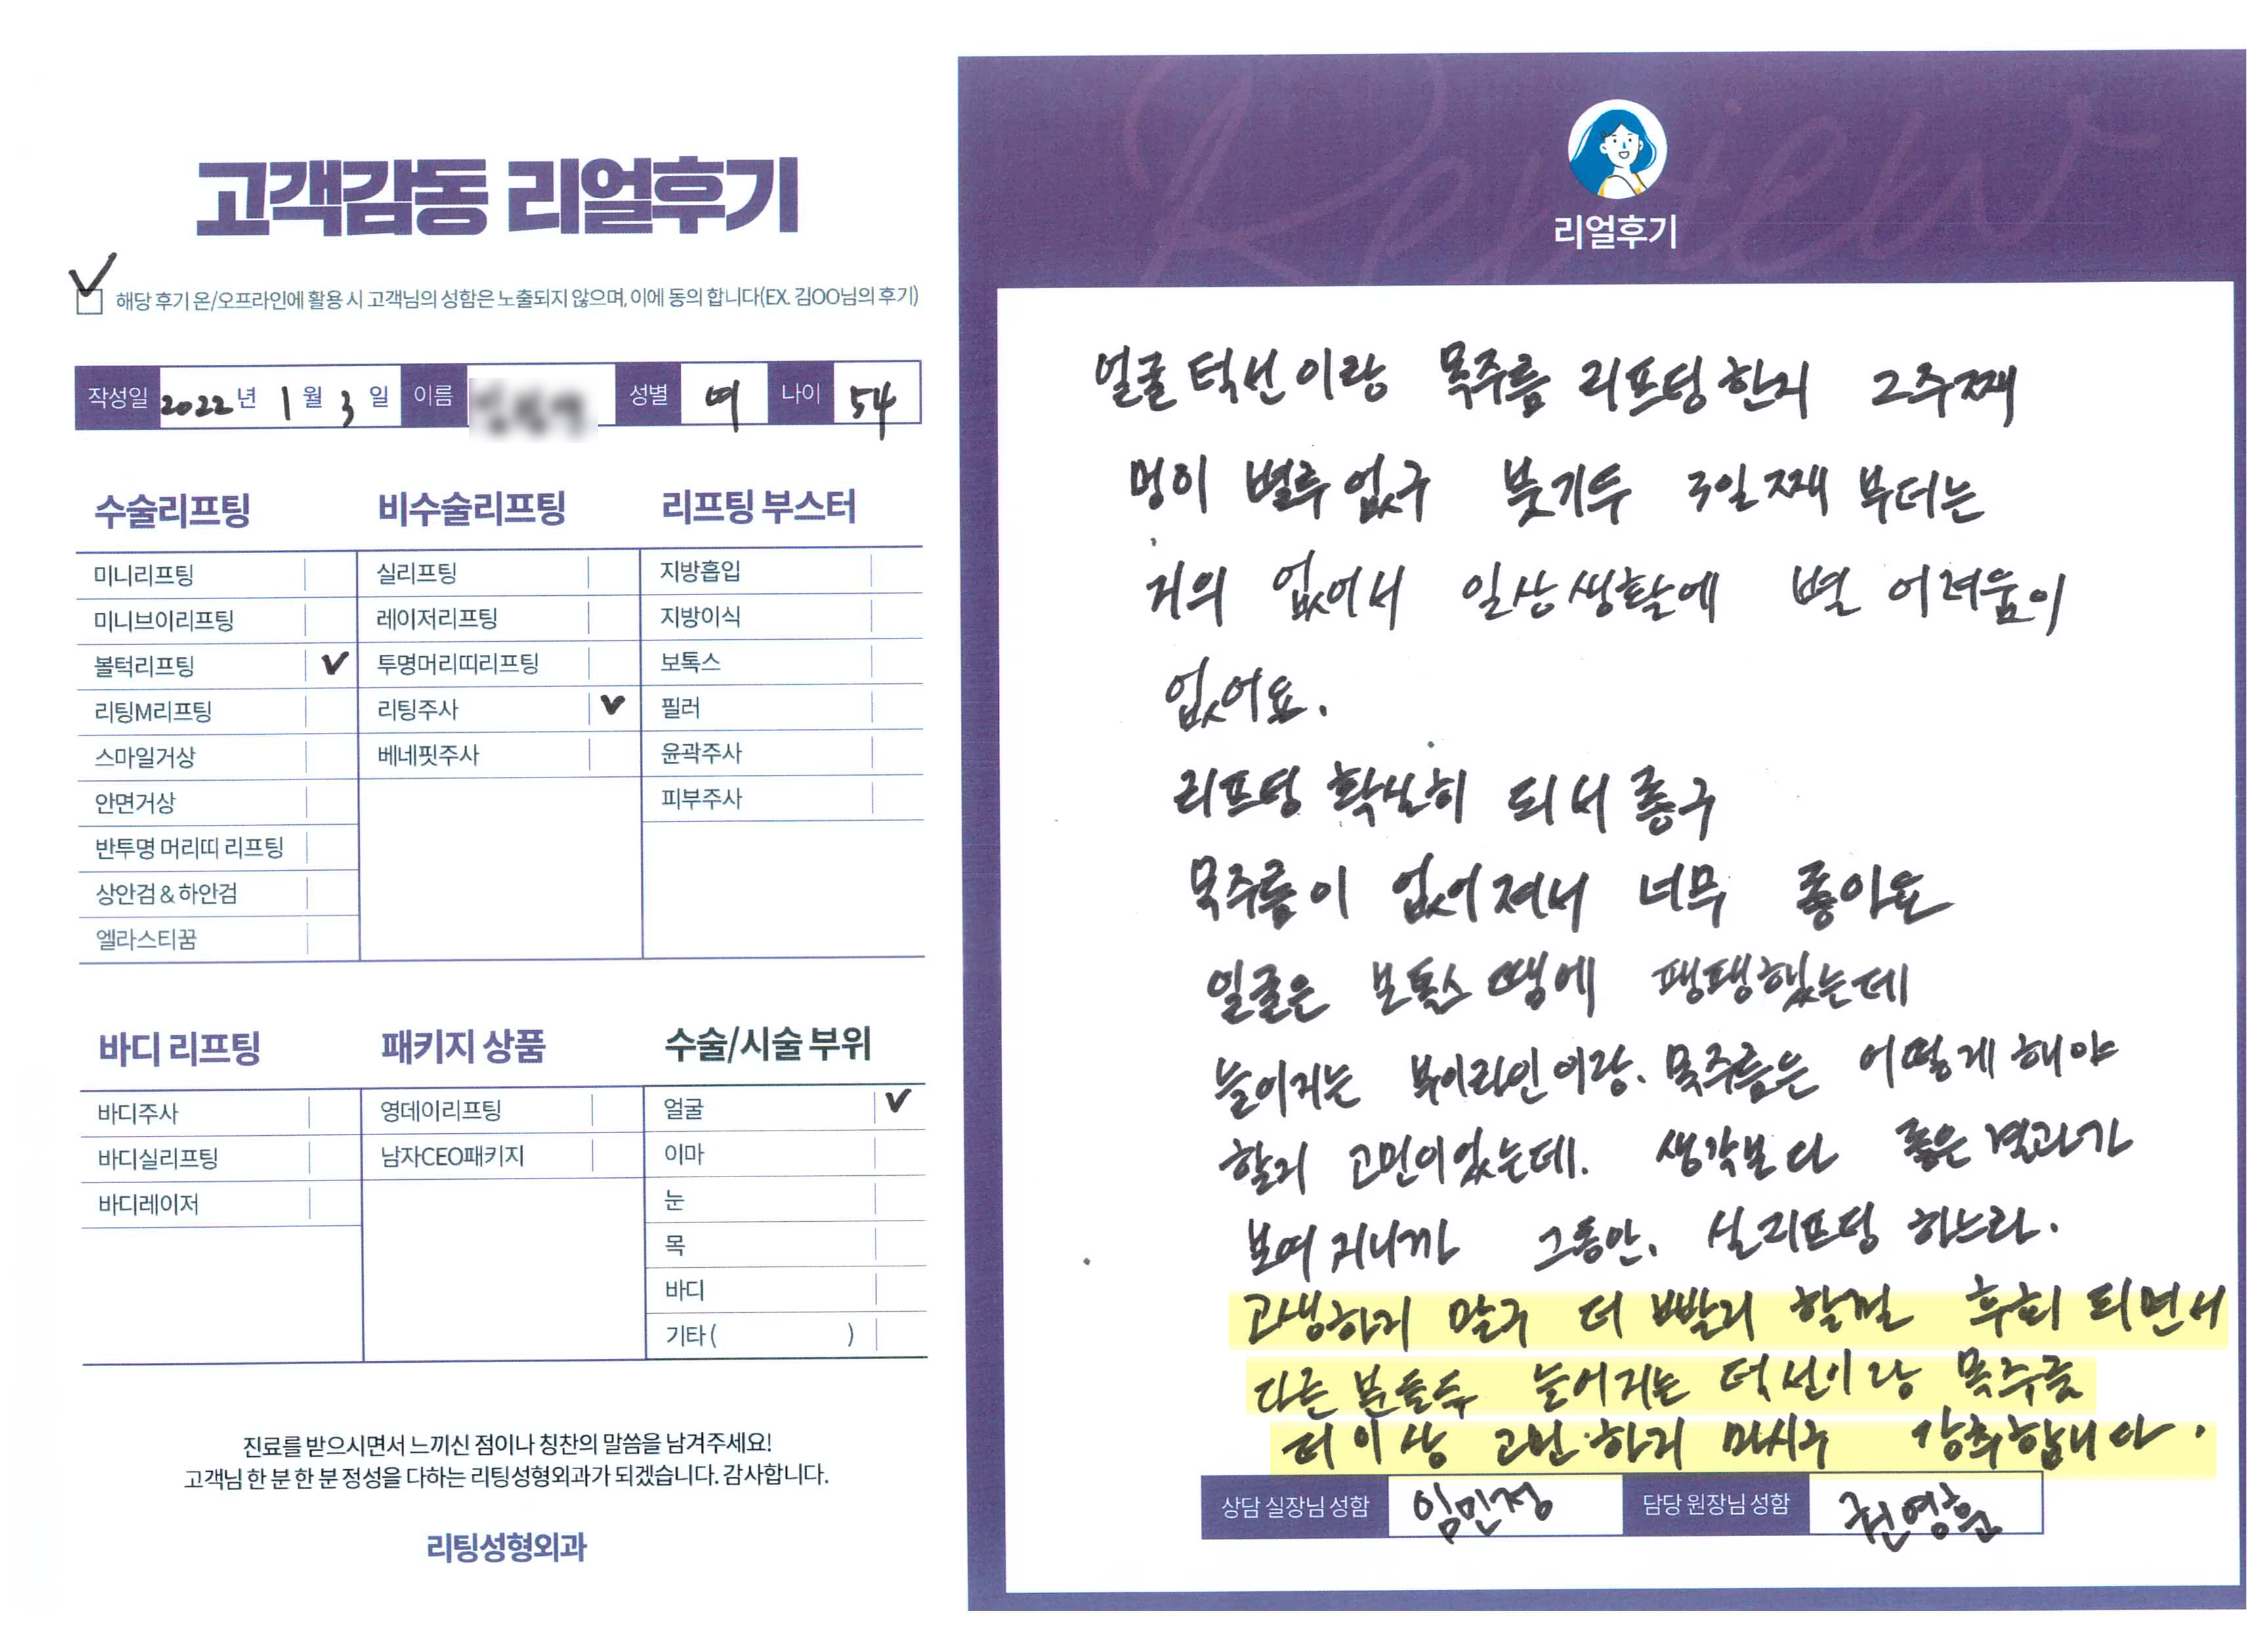 고객감동 리얼후기
✓ 해당 후기 온/오프라인에 활용 시 고객님의 성함은 노출되지 않으며, 이에 동의 합니다(EX. 김OO님의 후기)
작성일 2022년 1월 3일 이름 성별 여 나이 54
수술리프팅
미니리프팅
미니브이리프팅
볼턱리프팅 ✓
리팅M리프팅
스마일거상
안면거상
반투명 머리띠 리프팅
상안검 & 하안검
엘라스티꿈
비수술리프팅
실리프팅
레이저리프팅
투명머리띠리프팅
리팅주사 ✓
베네핏주사
리프팅 부스터
지방흡입
지방이식
보톡스
필러
윤곽주사
피부주사
바디 리프팅
바디주사
바디실리프팅
바디레이저
패키지 상품
영데이리프팅
남자CEO패키지
수술/시술 부위
얼굴 ✓
이마
눈
목
바디
기타 ( )
진료를 받으시면서 느끼신 점이나 칭찬의 말씀을 남겨주세요!
고객님 한 분 한 분 정성을 다하는 리팅성형외과가 되겠습니다. 감사합니다.
리팅성형외과
Review
리얼후기
얼굴 턱선이랑 목주름 리프팅한지 2주째
멍이 별루 없구 붓기두 3일째 부터는
거의 없어서 일상생활에 별 어려움이
없어요.
리프팅 확실히 되서 좋구
목주름이 없어져서 너무 좋아요
얼굴은 보톡스 땜에 팽팽했는데
늘어지는 브이라인이랑. 목주름은 어떻게 해야
할지 고민이었는데. 생각보다 좋은 결과가
보여지니까 그동안. 실리프팅 하느라.
고생하지 말구 더 빨리 할껄 후회 되면서
다른 분들두 늘어지는 턱선이랑 목주름
더이상 고민하지 마시구 강추합니다.
상담 실장님 성함 임민정 담당 원장님 성함